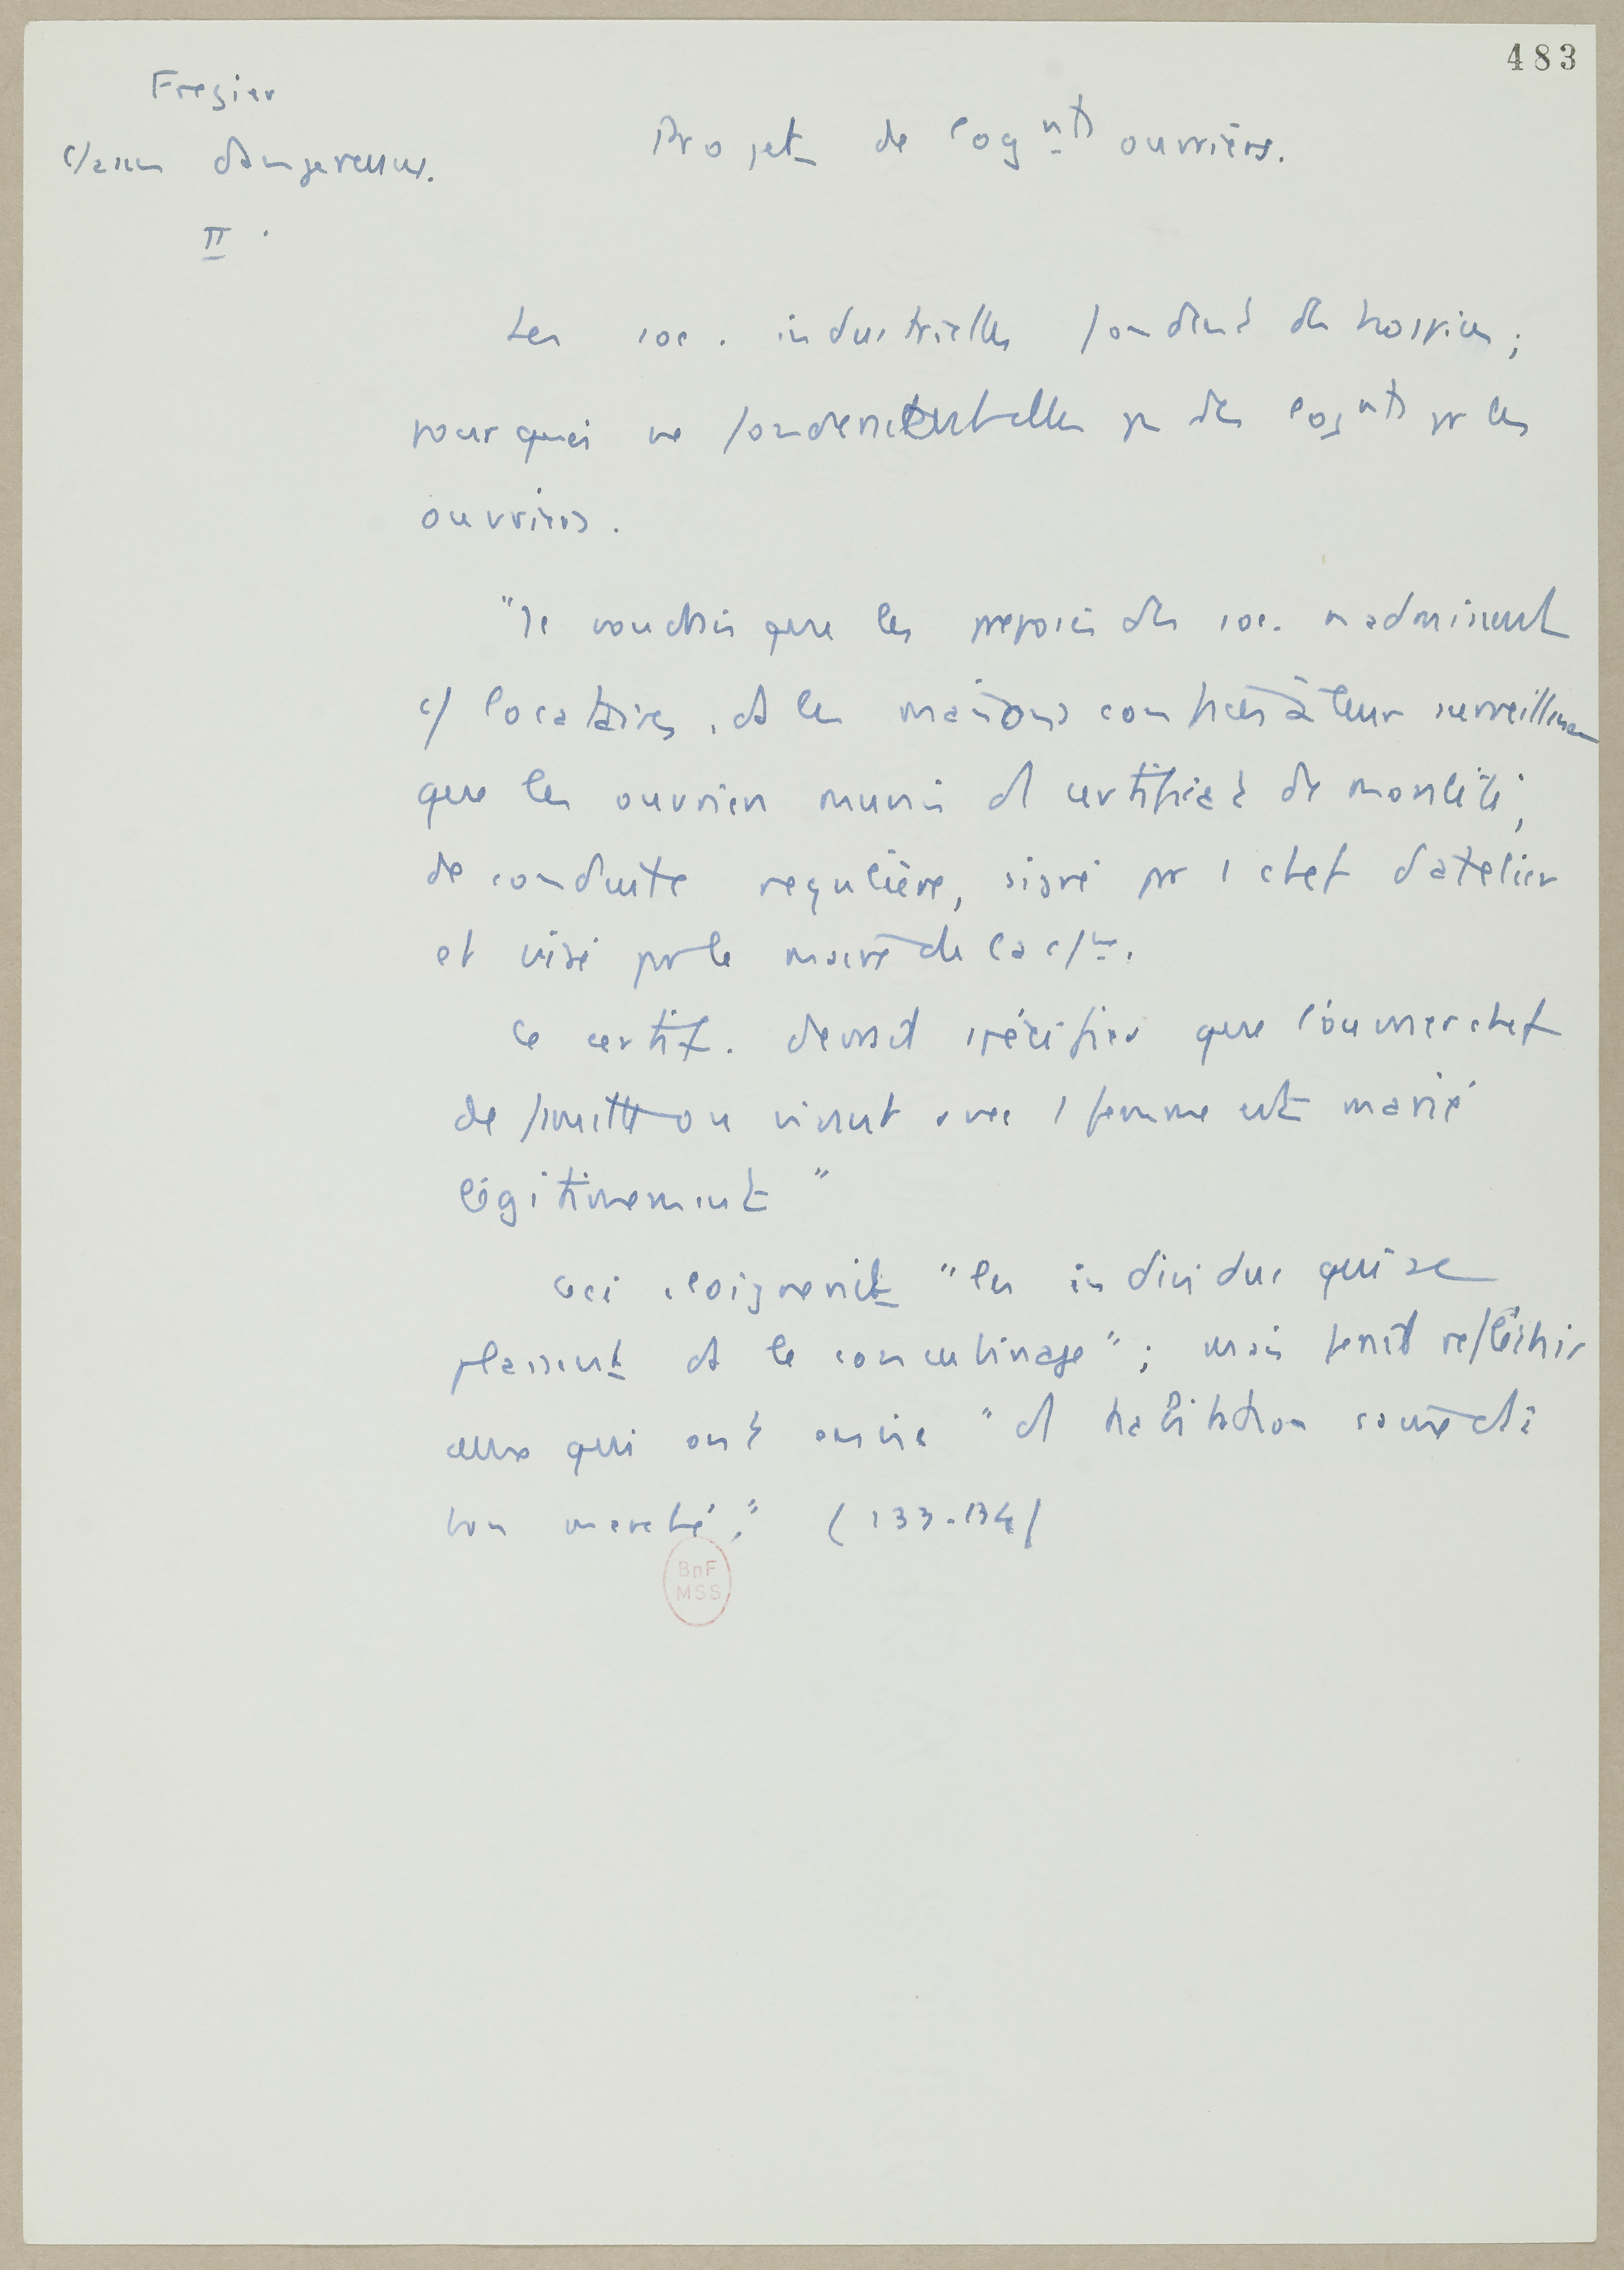 483
Fregier
Classes dangereuses.
II.
Projet de lognts ouvriers.
Les soc. industrielles fondent des hospices ;
pourquoi ne fonderaient-elles pas des lognts pr les
ouvriers.
"Je voudrais que les préposés des soc. n'admissent
c/ locataires, ds les maisons confiées à leur surveillance
que les ouvriers munis d certificat de moralité,
de conduite régulière, signé par 1 chef d'atelier
et visé par le maire de la
Ce certif. devrait spécifier que l'ouvrier chef
de famille ou vivant avec 1 femme est marié
légitimement"
Ceci éloignerait "les individus qui se
plaisent ds le concubinage" ; mais ferait réfléchir
ceux qui ont envie "d habitation saine et à
bon marché." (133-134)
BnF
MSS